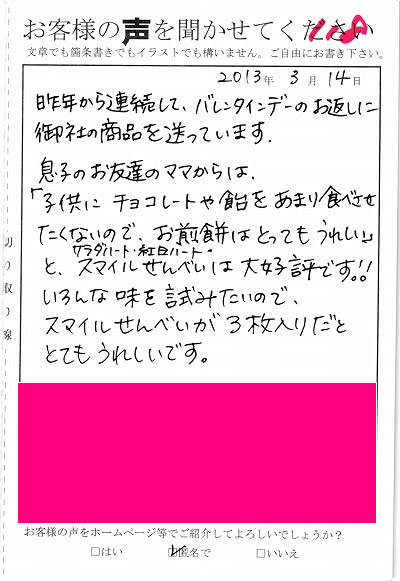 お客様の声を聞かせてください
118
文章でも箇条書きでもイラストでも構いません。ご自由にお書き下さい。
2013年 3月 14日
昨年から連続して、バレンタインデーのお返しに
御社の商品を送っています.
息子のお友達のママからは、
「子供に チョコレートや飴を あまり食べさせ
たくないので、お煎餅は とっても うれしい」
サラダハート・紅白ハート・
と、スマイルせんべいは 大好評です!!
いろんな 味を 試みたいので、
スマイルせんべいが 3枚入りだと
とてもうれしいです。
切り取り線
お客様の声をホームページ等でご紹介してよろしいでしょうか?
□はい □匿名で □いいえ